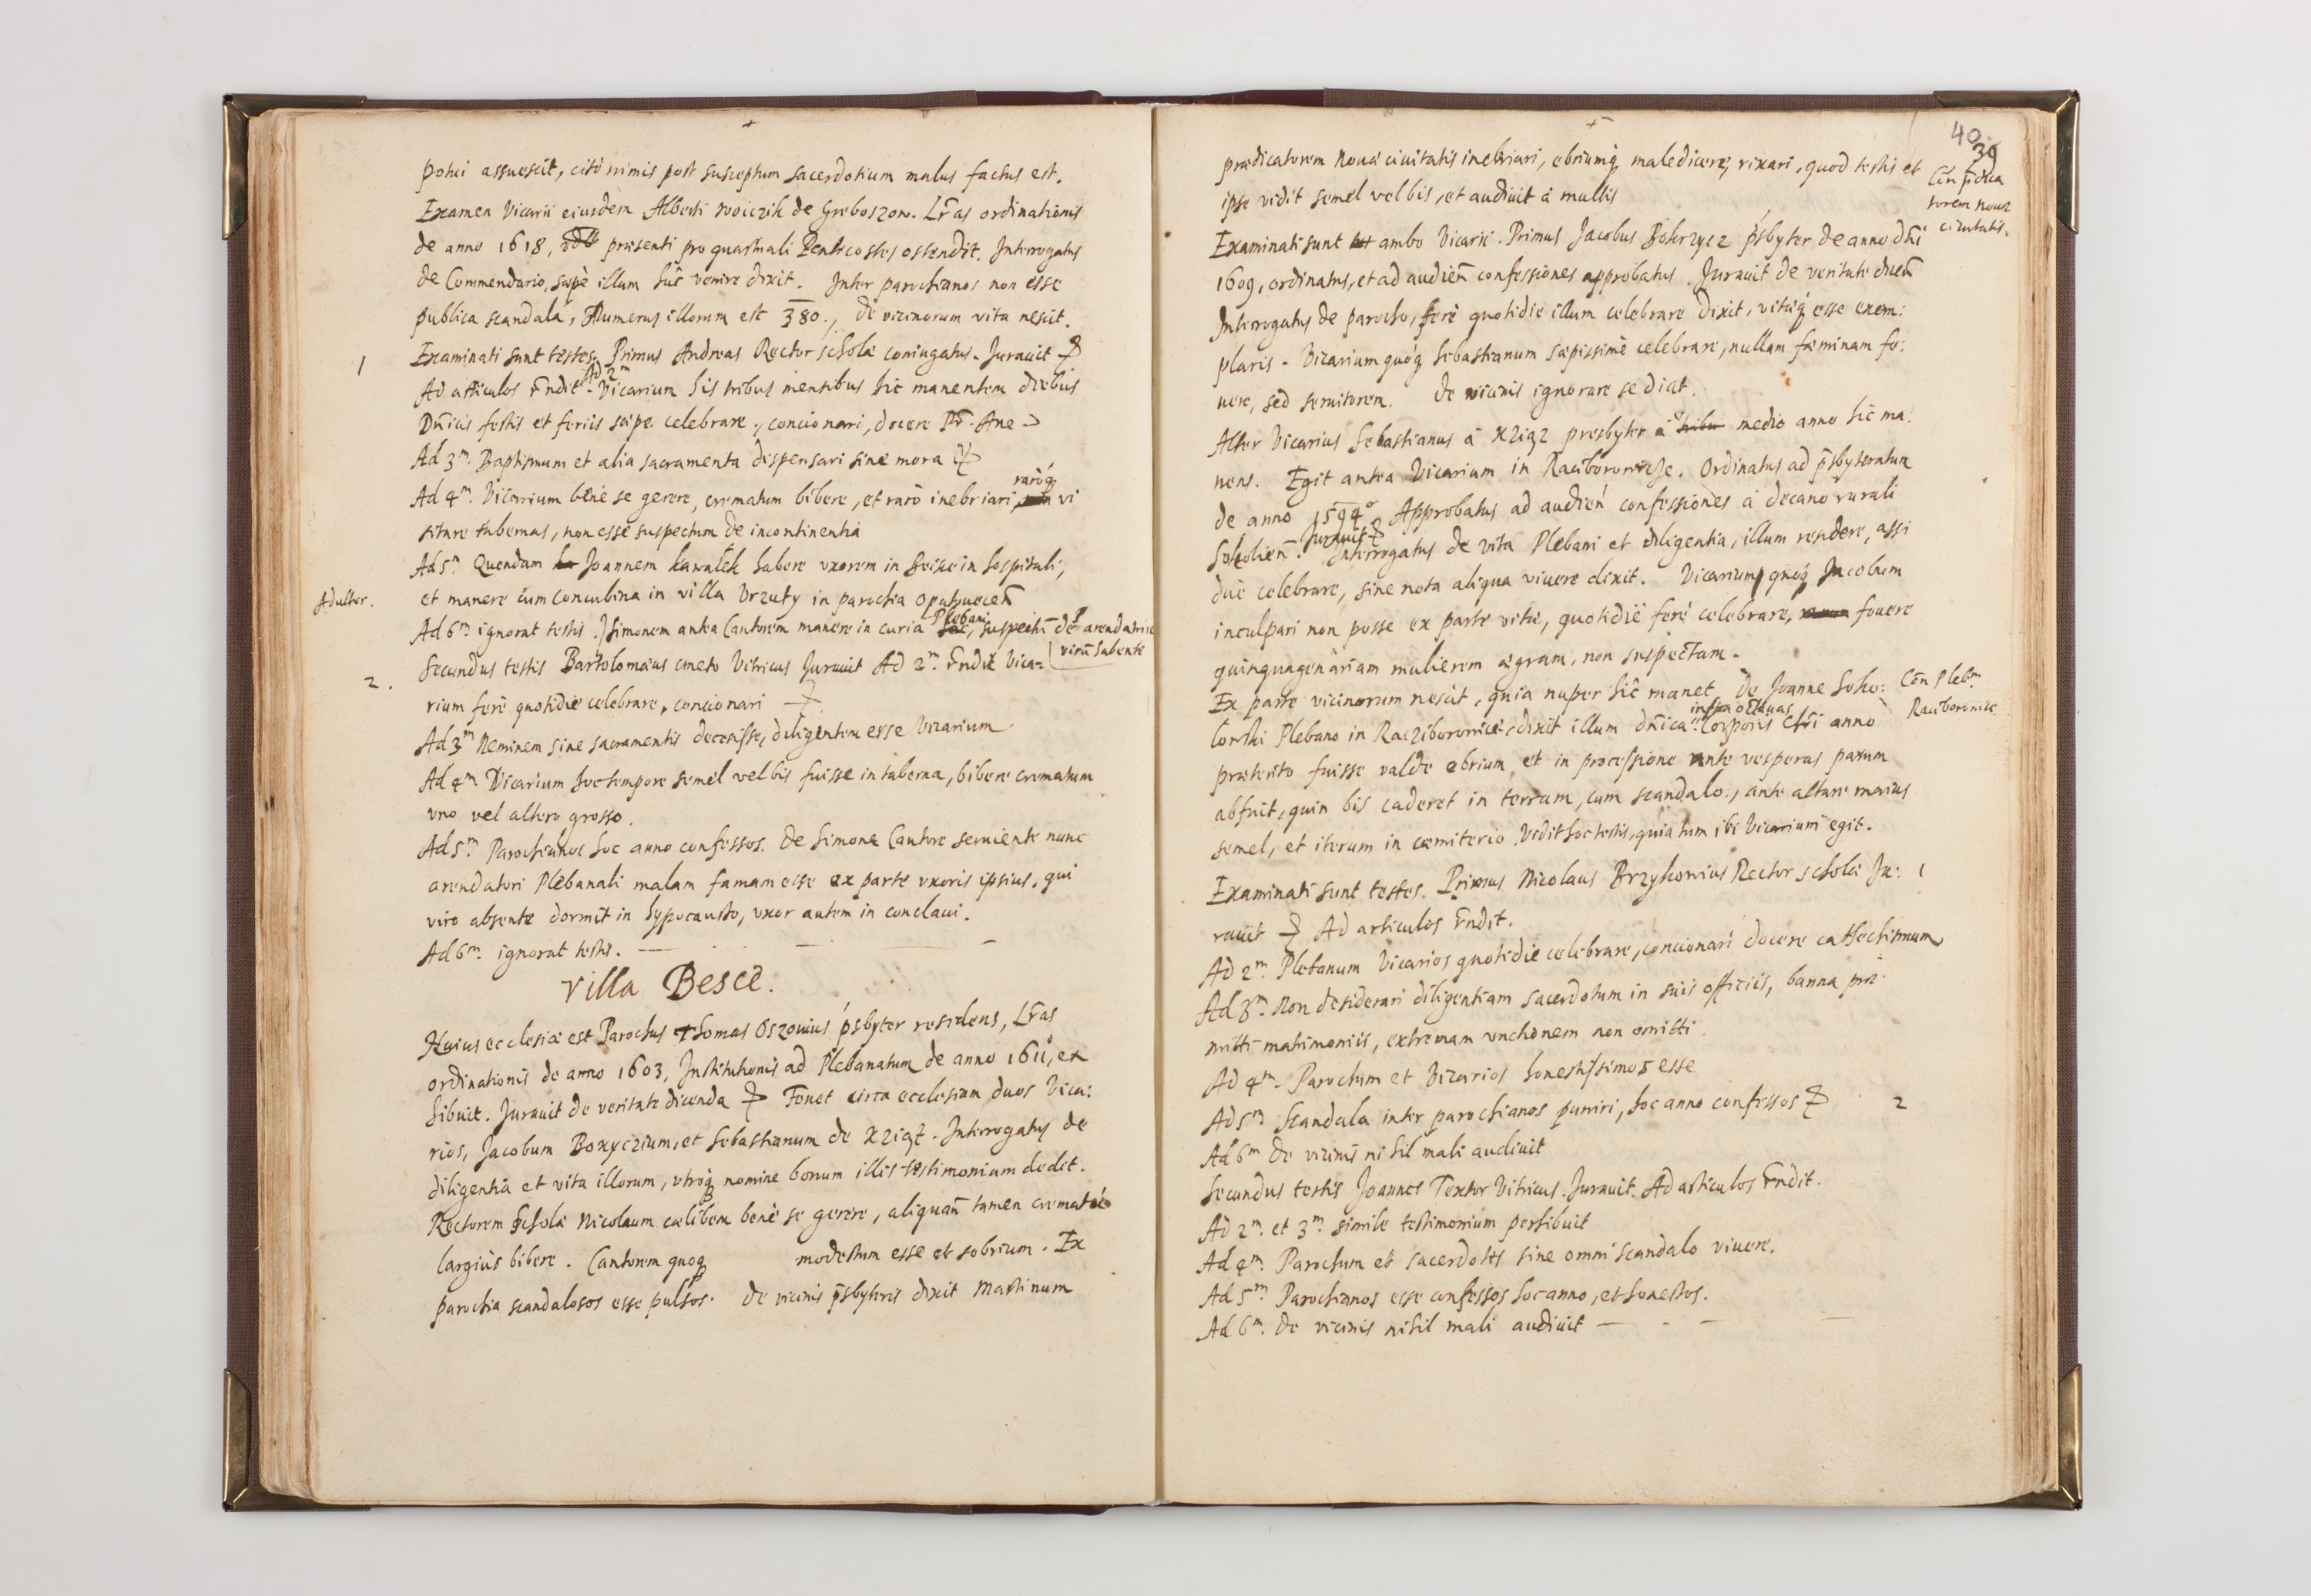 potui assuescit, citò nimis post susceptum sacerdotium malus factus est.
Examen Vicarii eiusdem Alberti Woiczik de Greboszow. Lr̃as ordinationis
de anno 1618, præsenti pro quartuali Pentecostes ostendit. Interrogatus
de Commendario, sæpè illum huc venire dixit. Inter parochianos non esse
publica scandala, Numerus illorum est 380., De vicinorum vita nescit.
1
Examinati sunt testes. Primus Andreas Rector scholæ coniugatus. Jurauit
Ad 2m
Ad articulos r̃ndit. Vicarium his tribus mensibus hic manentem diebus
Dñicis festis et feriis sæpe celebrare, concionari, docere Pr̃. Aue
Ad 3m. Baptismum et alia sacramenta dispensari sine mora
raróq
Ad 4m. Vicarium bene se gerere, crematum bibere, et raro inebriari, vi
sitare tabernas, non esse suspectum de incontinentia
Ad 5m. Quendam Joannem Kawalek habere vxorem in hospitali,
Adulter.
et manere cum concubina in villa Brzuty in parochia
Plebani
Ad 6m. ignorat testis. Simonem antea Cantorem manere in curia hac, suspectũ de arendatrice
virũ habente
2.
Secundus testis Bartolomæus cmeto Vitricus Jurauit Ad 2m. r̃ndit Vica:
rium ferè quotidie celebrare, concionari
Ad 3m Neminem sine sacramentis decessisse, diligentem esse Vicarium
Ad 4m Vicarium hoc tempore semel vel bis fuisse in taberna, bibere crematum
vno vel altero grosso.
Ad 5m. Parochianos hoc anno confessos. De Simone Cantore seruiente nunc
arendatori Plebanali malam famam esse ex parte vxoris ipsius, qui
viro absente dormit in hypocausto, vxor autem in conclaui.
Ad 6m. ignorat testis.
Villa Besce.
Huius ecclesiæ est Parochus Thomas Oszouius p̃sbyter residens, Lr̃as
ordinationis de anno 1603, Institutionis ad Plebanatum de anno 1611, ex
hibuit. Jurauit de veritate dicenda Fouet circa ecclesiam duos Vica:
rios, Jacobum Boxyczium, et Sebastianum de Xziąz. Interrogatus de
diligentia et vita illorum, vtroq nomine bonum illis testimonium dedit.
Rectorem Scholæ Nicolaum cælibem bene se gerere, aliquañ tamen crematũ
largius bibere. Cantorem quoq modestum esse et sobrium. Ex
parochia scandalosos esse pulsos. De vicinis p̃sbyteris dixit Martinum
40
39
prædicatorem Nouæ ciuitatis inebriari, ebriumq maledicere, rixari, quod testis et
Coñ p̃dica
torem nouæ
ciuitatis.
ipse vidit semel vel bis, et audiuit à multis
Examinati sunt ambo Vicarii. Primus Jacobus Bokrzycz p̃sbyter de anno dñi
1609, ordinatus, et ad audieñ confessiones approbatus. Jurauit de veritate diceñ
Interrogatus de parocho, ferè quotidie illum celebrare dixit, vitæq esse exem:
plaris. Vicarium quoq Sebastianum sæpissimè celebrare, nullam fæminam fo:
uere, sed seruitorem. De vicinis ignorare se dicit.
Alter Vicarius Sebastianus à Xziąz presbyter à medio anno hic ma:
nens. Egit antea Vicarium in Raciborowice. Ordinatus ad p̃sbyteratum
de anno 1594o Approbatus ad audień confessiones à decano rurali
Jurauit
Sokolień. Interrogatus de vita Plebani et diligentia, illum residere, assi
duè celebrare, sine nota aliqua viuere dixit. Vicarium quoq Jacobum
inculpari non posse ex parte vitæ, quotidie ferè celebrare, fouere
quinquagenariam mulierem ægram, non suspectam.
Ex parte vicinorum nescit, quia nuper hic manet, De Joanne Soko:
Coñ Plebm.
Raciborouice
infra octauas
lowski Plebano in Racziborowice, dixit illum dñica Corporis Chri anno
præterito fuisse valde ebrium, et in processione ante vesperas parum
abfuit, quin bis caderet in terram, cum scandalo, ante altare maius
semel, et iterum in cæmiterio. Vidit hoc testis, quia tum ibi Vicarium egit.
Examinati sunt testes. Primus Nicolaus Brzykonius Rector scholæ Ju:
1
rauit Ad articulos r̃ndit.
Ad 2m. Plebanum Vicarios quotidie celebrare, concionari docere cathechismum
Ad 3m. Non desiderari diligentiam sacerdotum in suis officiis, banna præ
mitti matimoniis, extremam vnctionem non omitti
Ad 4m. Parochum et Vicarios honestissimos esse
Ad 5m Scandala inter parochianos puniri, hoc anno confessos
2
Ad 6m De vicinis nihil mali audiuit
Secundus testis Joannes Textor Vitricus. Jurauit. Ad articulos r̃ndit.
Ad 2m. et 3m. simile testimonium perhibuit
Ad 4m. Parochum et sacerdotes sine omni scandalo viuere.
Ad 5m. Parochianos esse confessos hoc anno, et honestos.
Ad 6m. De vicinis nihil mali audiuit